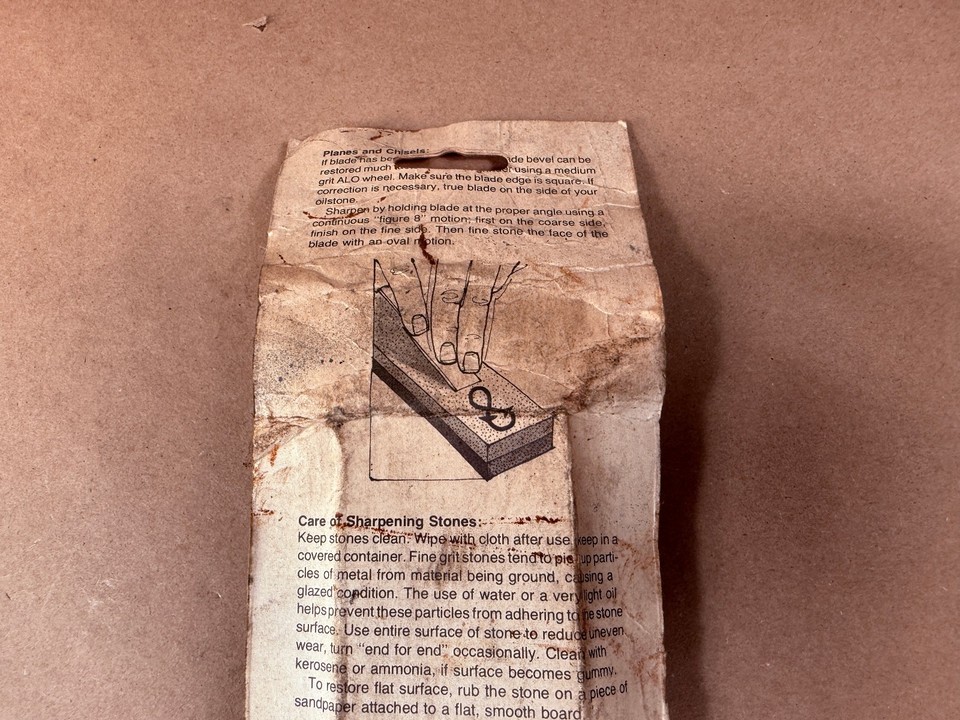 Planes and Chisels:
If blade has be ide bevel can be
restored much using a medium
grit ALO wheel. Make sure the blade edge is square. If
correction is necessary, true blade on the side of your
oilstone.
Sharpen by holding blade at the proper angle using a
continuous "figure 8" motion; first on the coarse side,
finish on the fine side. Then fine stone the face of the
blade with an oval motion.
Care of Sharpening Stones:
Keep stones clean. Wipe with cloth after use keep in a
covered container. Fine grit stones tend to pick up parti-
cles of metal from material being ground, causing a
glazed condition. The use of water or a very light oil
helps prevent these particles from adhering to the stone
surface. Use entire surface of stone to reduce uneven
wear, turn "end for end" occasionally. Clean with
kerosene or ammonia, if surface becomes gummy.
To restore flat surface, rub the stone on a piece of
sandpaper attached to a flat, smooth board.